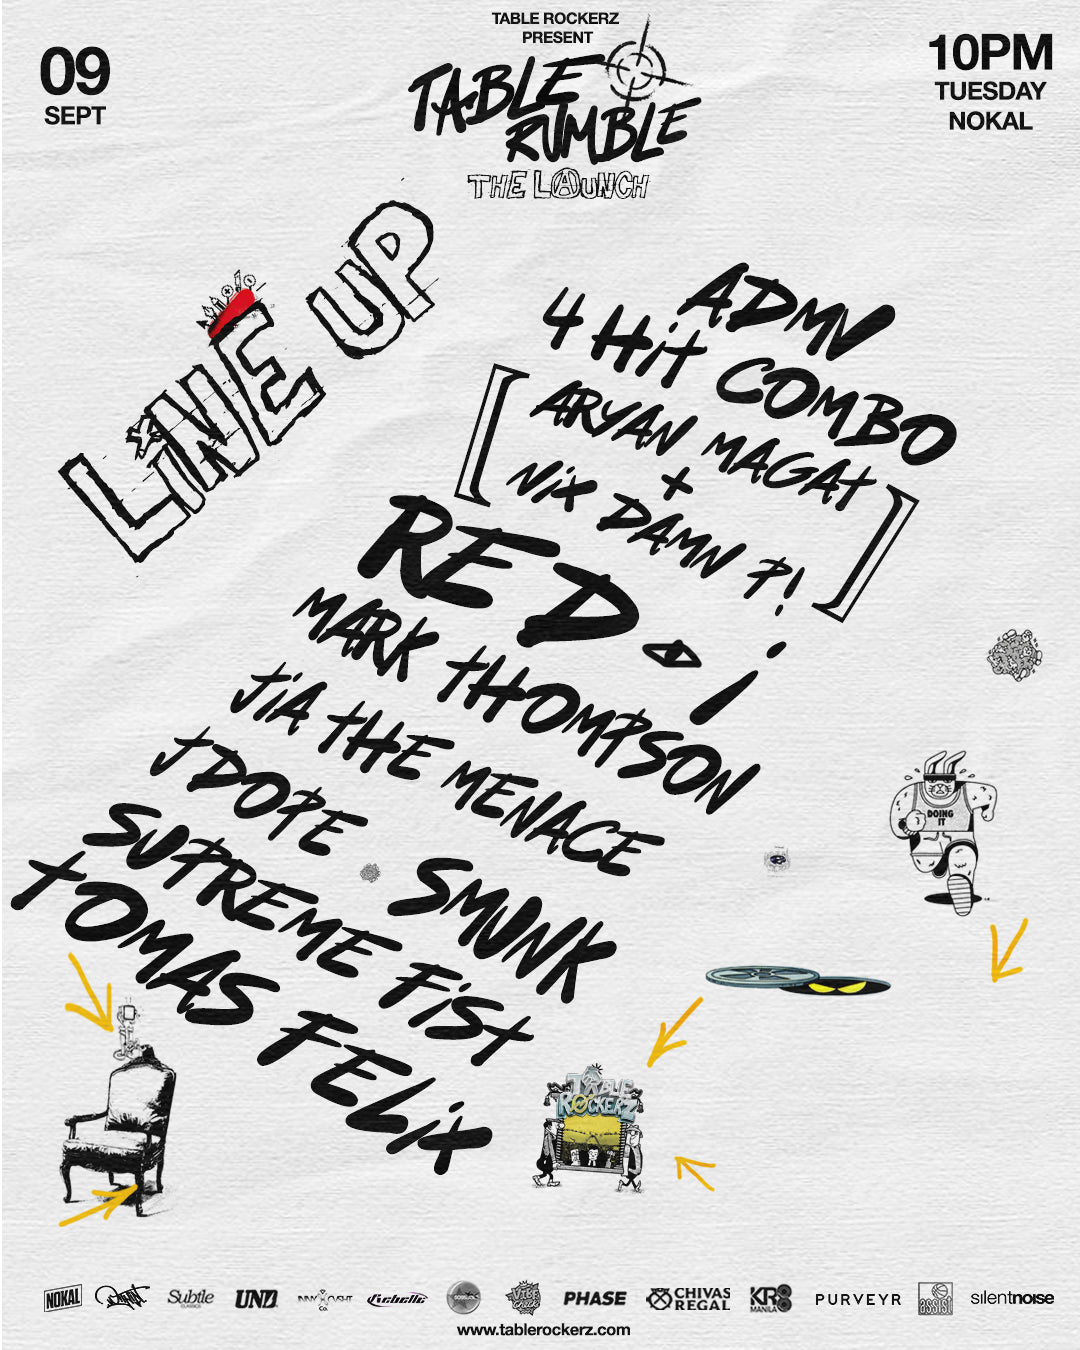 TABLE ROCKERZ
PRESENT
09
SEPT
TABLE
RUMBLE
THE LAUNCH
10PM
TUESDAY
NOKAL
LiNE UP
ADMV
4 Hit COMBO
[ARYAN MAGAt
+
Nix DAMN ?!]
RED.i
MARK tHOMPSON
JiA tHE MENACE
JDOPE
SMUNK
SUPREME FiSt
tOMAS FELix
DOING
IT
TABLE
ROCKERZ
NOKAL
Subtle
CLASSICS
UND.
VIBE
CHECK
PHASE
CHIVAS
REGAL
KR8
MANILA
PURVEYR
assist
silentnoise
www.tablerockerz.com